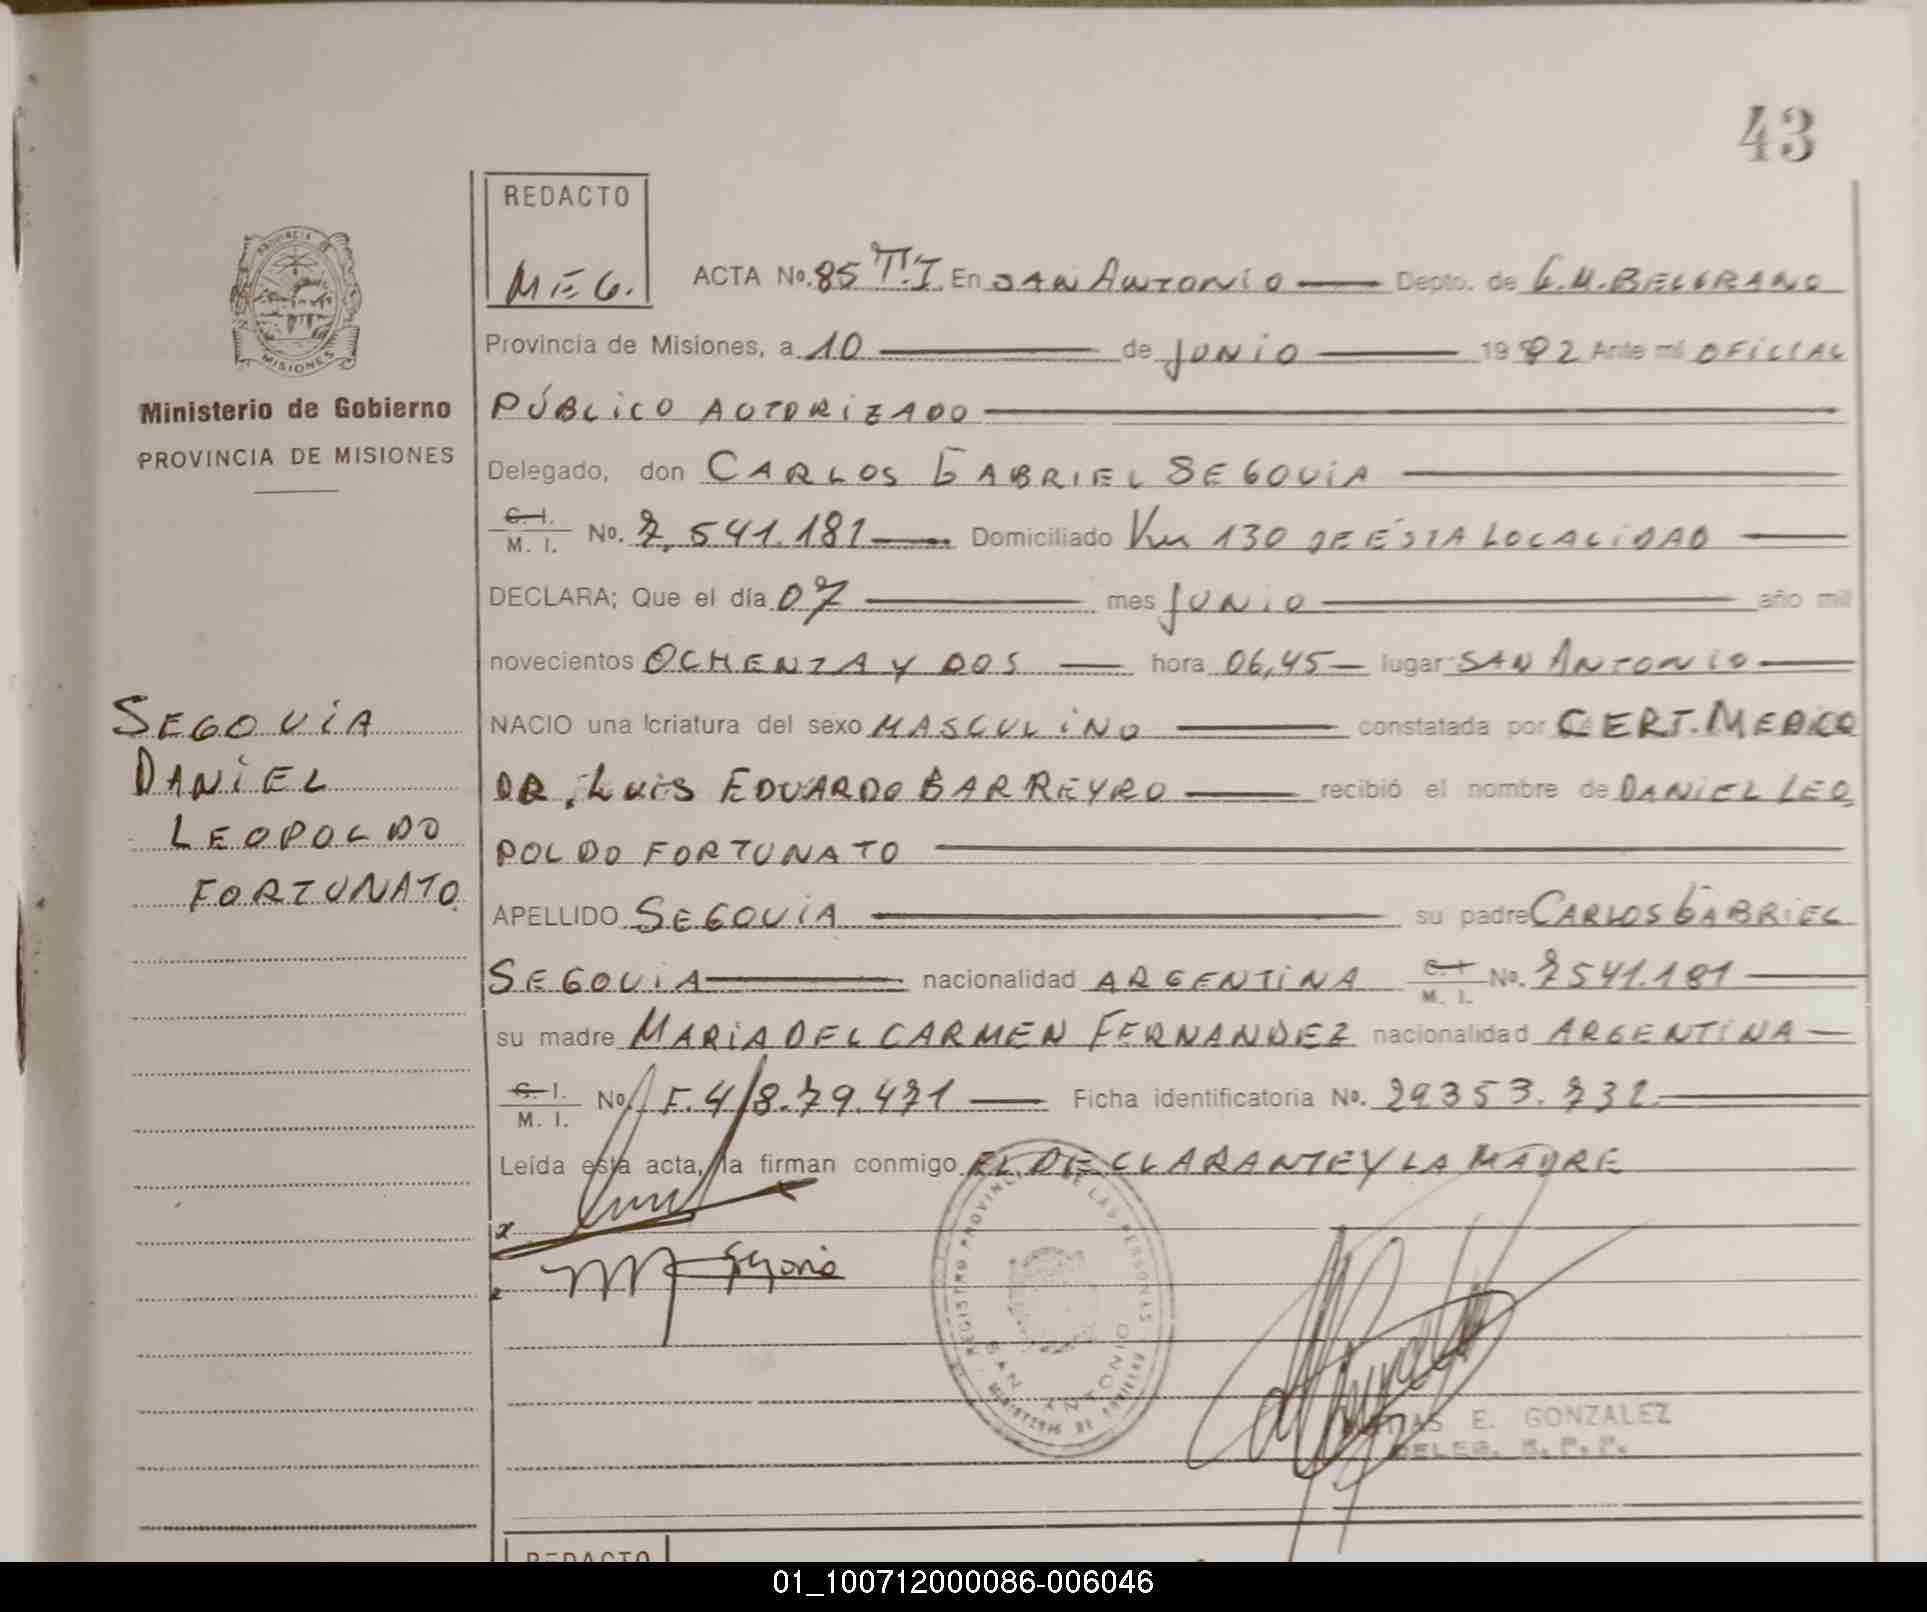 43
REDACTO
M.E.G.
PROVINCIA DE
MISIONES
Ministerio de Gobierno
PROVINCIA DE MISIONES
ACTA No. 85 T.I. En SAN ANTONIO Depto. de G.M. BELGRANO
Provincia de Misiones, a 10 de JUNIO 1982 Ante mi OFICIAL
PÚBLICO AUTORIZADO
Delegado, don CARLOS GABRIEL SEGOVIA
C. I. M. I. No. 7.541.181 Domiciliado Km 130 DE ÉSTA LOCALIDAD
DECLARA; Que el día 07 mes JUNIO año mil
novecientos OCHENTA Y DOS hora 06,45 lugar SAN ANTONIO
NACIO una criatura del sexo MASCULINO constatada por CERT. MEDICO
DR. LUIS EDUARDO BARREYRO recibió el nombre de DANIEL LEO
POLDO FORTUNATO
APELLIDO SEGOVIA su padre CARLOS GABRIEL
SEGOVIA nacionalidad ARGENTINA C. I. M. I. No. 7541.181
su madre MARIA DEL CARMEN FERNANDEZ nacionalidad ARGENTINA
C. I. M. I. No. F.4/8.79.471 Ficha identificatoria No. 29353.732
Leída esta acta, la firman conmigo EL DECLARANTE Y LA MADRE
SEGOVIA
DANIEL
LEOPOLDO
FORTUNATO
x
Segovia
REGISTRO PROVINCIAL DE LAS PERSONAS
SAN ANTONIO
MINISTERIO DE GOBIERNO
E. GONZALEZ
DELEG. R. P. P.
REDACTO
01_100712000086-006046